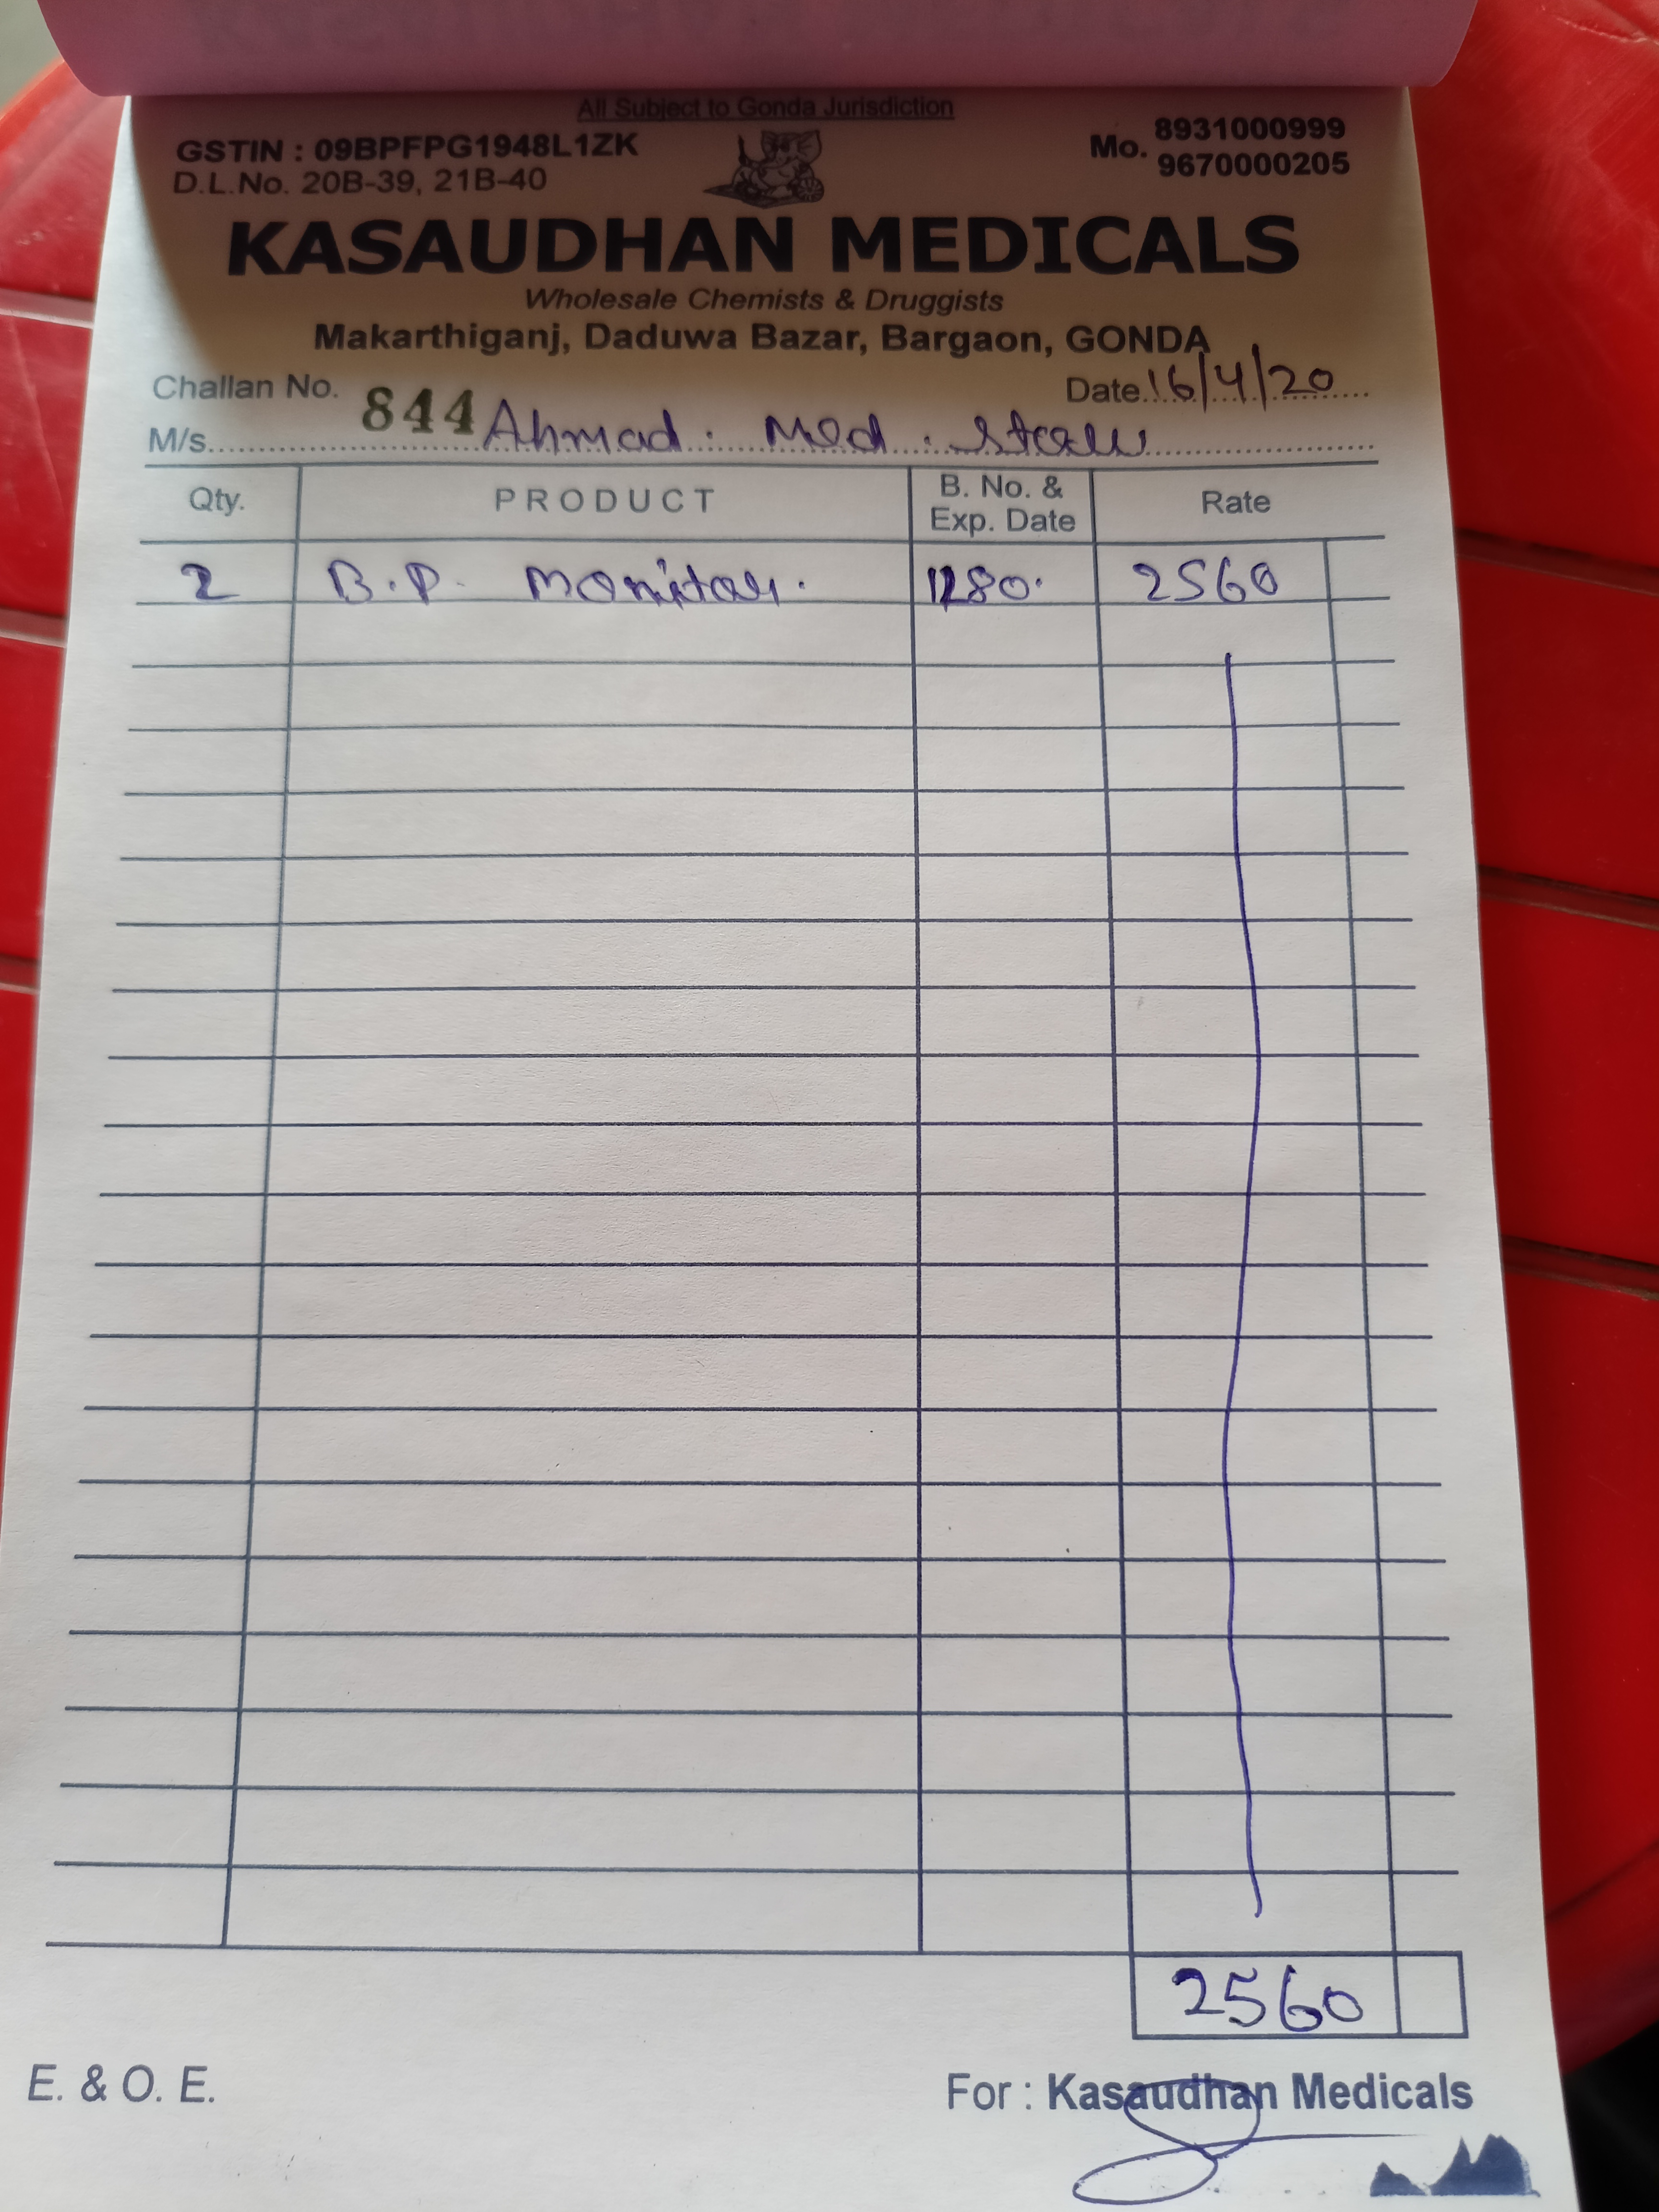 All Subject to Gonda Jurisdiction
GSTIN : 09BPFPG1948L1ZK
D.L.No. 20B-39, 21B-40
Mo. 8931000999
9670000205
KASAUDHAN MEDICALS
Wholesale Chemists & Druggists
Makarthiganj, Daduwa Bazar, Bargaon, GONDA
Challan No. 844
Date 16/4/20
M/s. Ahmad. Med. Store
Qty. PRODUCT B. No. & Exp. Date Rate
2 B.P. Monitor. 1280. 2560
2560
E. & O. E.
For : Kasaudhan Medicals